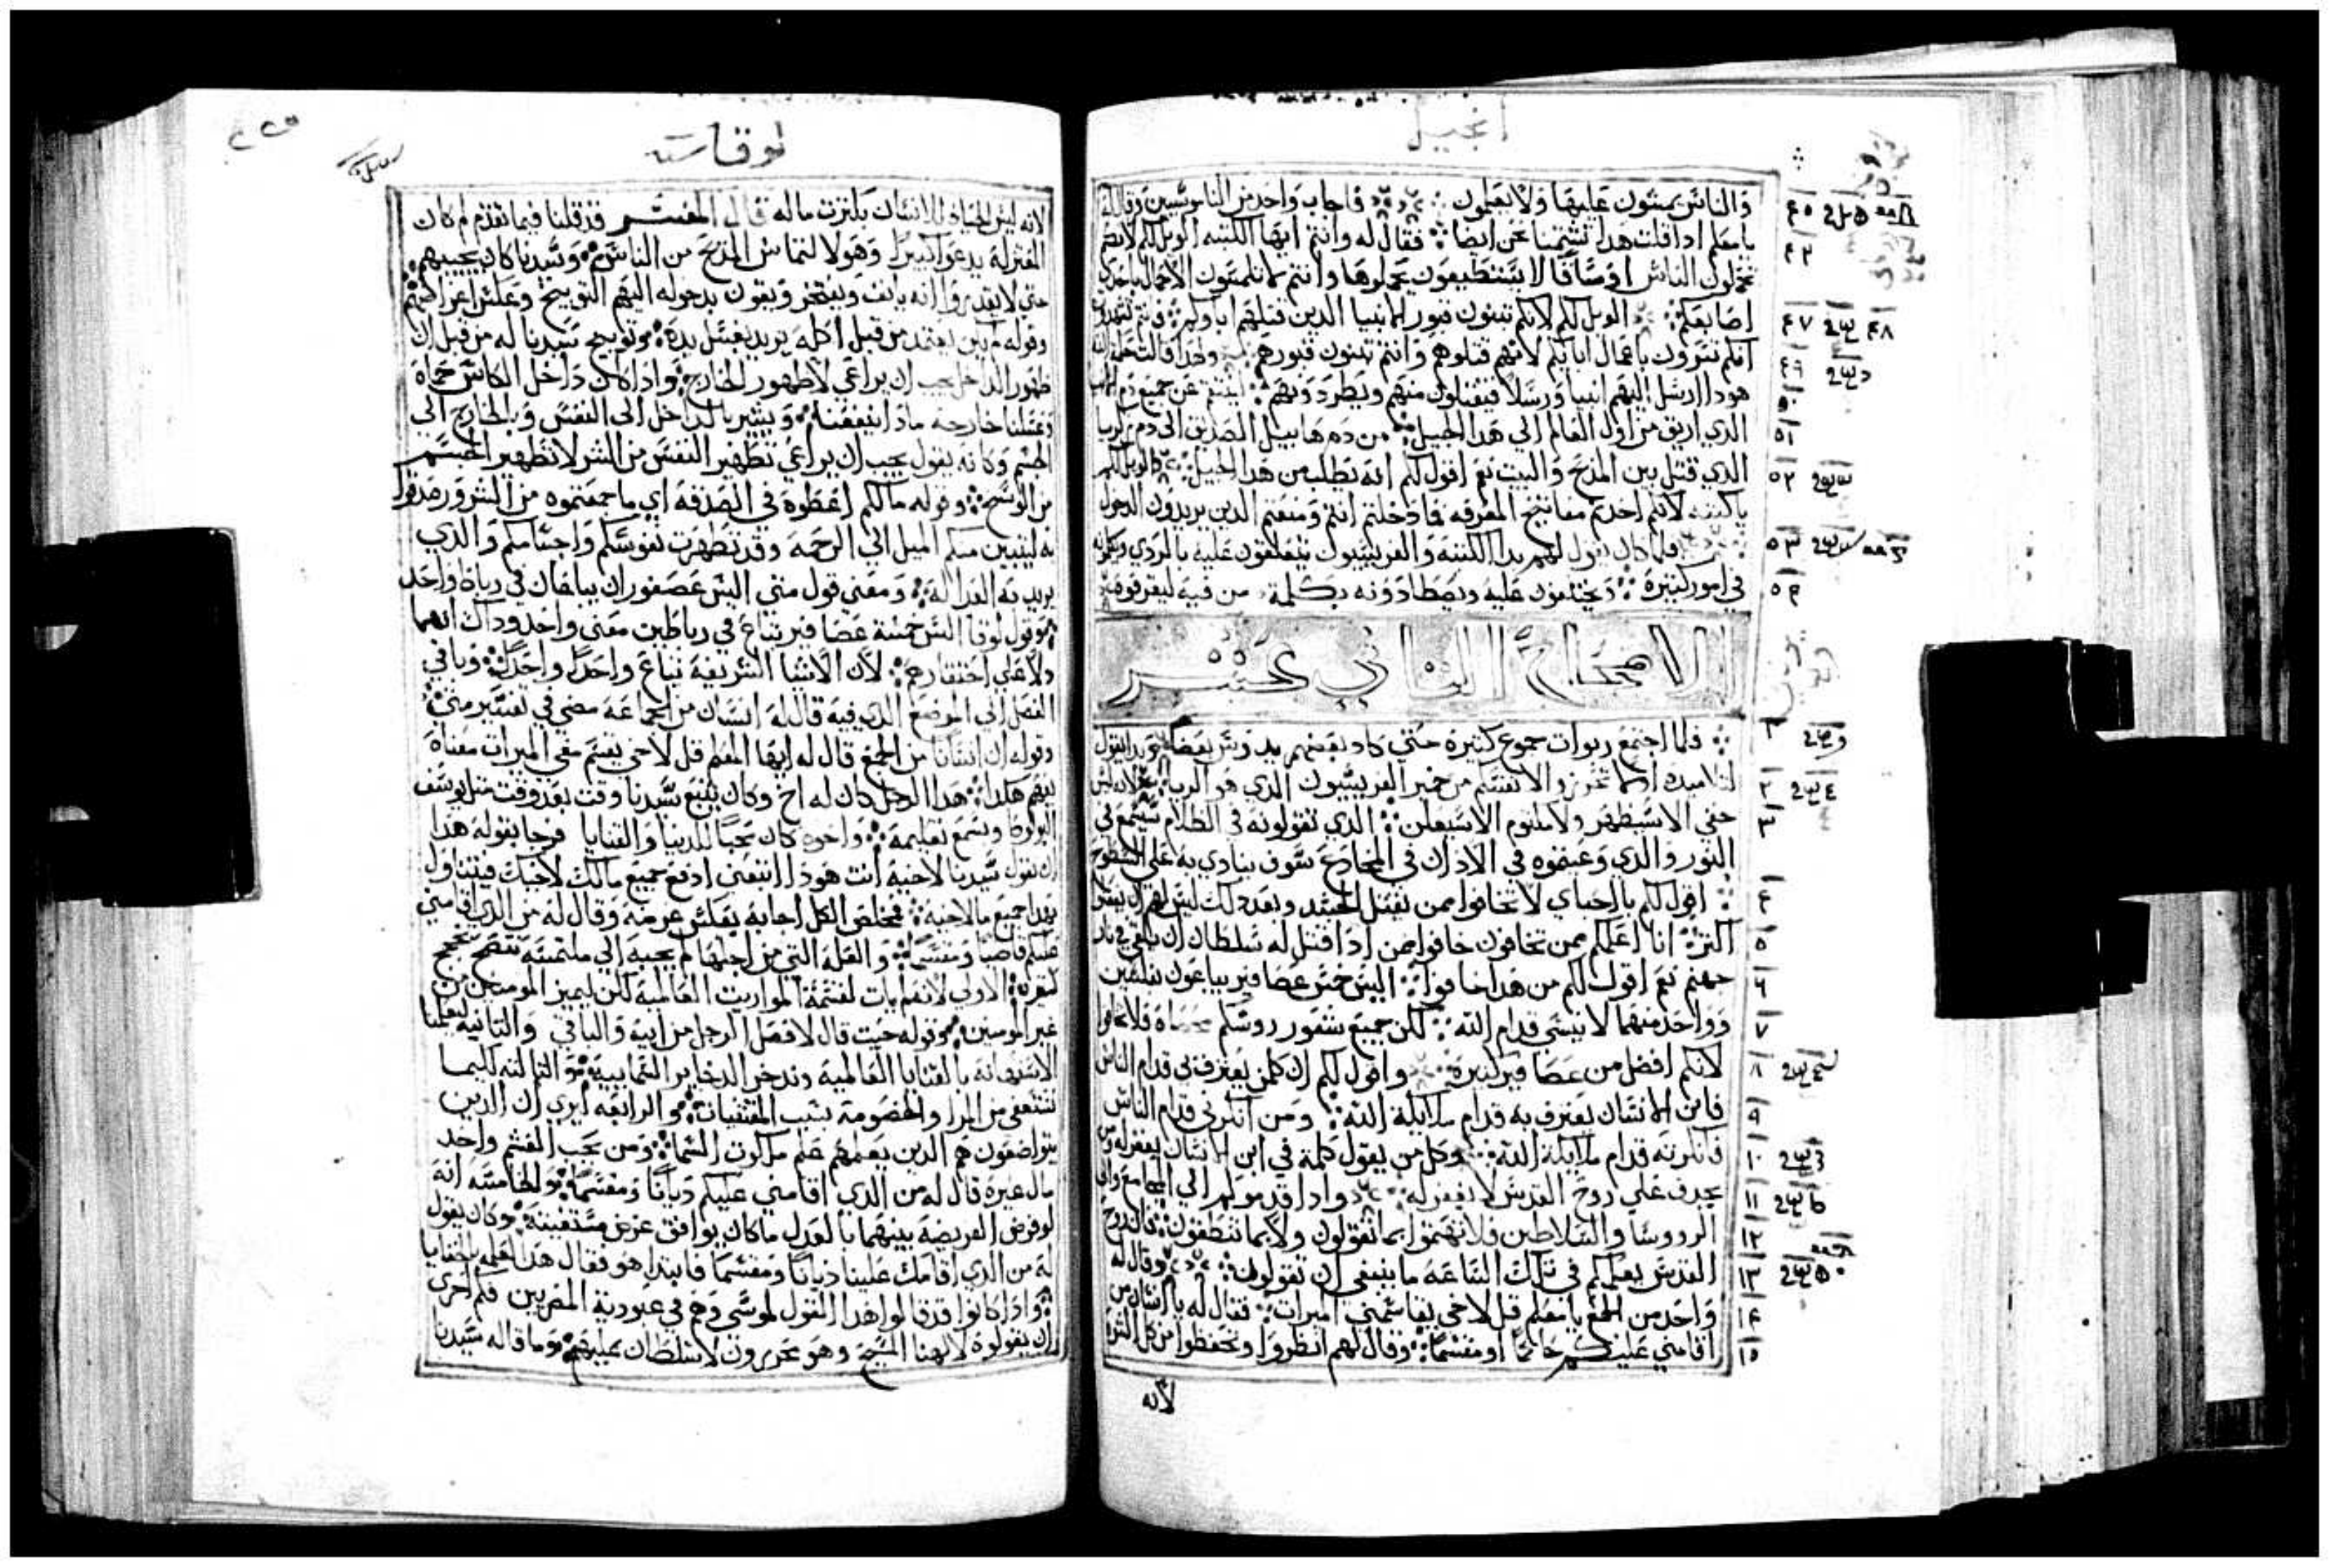 انجيل
والناس يمشون عليها ولا يعلمون فاجاب واحد من الناموسيين وقال له
يا معلم اذا قلت هدا تشتمنا نحن ايضا فقال له وانتم ايها الكتبه الويل لكم لانكم
تحملون الناس اوساقا لا يستطيعون يحملوها وانتم لا تلمسون الاحمال باحدى
اصابعكم الويل لكم لانكم تبنون قبور الانبيا الدين قتلهم اباوكم فانتم تشهدون
انكم تسرون باعمال ابايكم لانهم قتلوهم وانتم تبنون قبورهم ولهدا قالت حكمة الله
هودا ارسل اليهم انبيا ورسلا فيقتلون منهم ويطردونهم لينتقم عن جميع دم الانبيا
الدي اريق من اول العالم الي هدا الجيل من دم هابيل الصديق الي دم زكريا
الدي قتل بين المدبح والبيت نعم اقول لكم انه يطلب من هدا الجيل الويل لكم
يا كتبه لانكم اخدتم مفاتيح المعرفه فما دخلتم انتم ومنعتم الدين يريدون الدخول
فلما كان يقول لهم هدا الكتبه والفريسيون يتقلقون عليه بالردي
في امور كثيرة ويحتالون عليه ويصطادونه بكلمة من فيه ليقرفوه
الاصحاح الثاني عشر
فلما اجتمع ربوات جموع كثيرة حتي كاد بعضهم يدوس بعضا فبدا يقول
لتلاميده اولا تحرزوا لانفسكم من خمير الفريسيون الدي هو الريا لانه ليس
خفي الا سيظهر ولا مكتوم الا سيعلن الدي تقولونه في الظلام سيسمع في
النور والدي وعيتموه في الادان في المخادع سوف ينادي به علي السطوح
اقول لكم يا احباي لا تخافوا ممن يقتل الجسد وبعد دلك ليس لهم ان يفعلوا
اكثر انا اعلمكم ممن تخافون خافوا ممن ادا قتل له سلطان ان يلقي في نار
جهنم نعم اقول لكم من هدا خافوا اليس خمس عصافير يباعون بفلسين
وواحد منهما لا ينسي قدام الله لكن جميع شعور روسكم محصاة فلا تخافوا
لانكم افضل من عصافير كثيرة واقول لكم ان كلمن يعترف بي قدام الناس
فابن الانسان يعترف به قدام ملايكة الله ومن انكرني قدام الناس
فانكرته قدام ملايكة الله وكل من يقول كلمة في ابن الانسان يغفر له ومن
يجدف علي روح القدس لا يغفر له وادا قدموكم الي المجامع والي
الرووسا والسلاطين فلا تهتموا بما تقولون ولا بما تنطقون فان روح
القدس يعلمكم في تلك الساعه ما ينبغي ان تقولون وقال له
واحد من الجمع يا معلم قل لاخي يقاسمني الميرات فقال له يا انسان من
اقامني عليكم حاكما او مقسما وقال لهم انظروا وتحفظوا من كل الشره
لانه
لوقا
٢٢٥
لانه ليس الحياة للانسان بكثرت ماله قال المفسر قد قلنا فيما تقدم لم كان
المعتزلة يدعوا كثيرا وهو لالتماس المدح من الناس وسيدنا كان يجيبهم
حتي لا يقدروا انه يانف ويفتخر ويقون بدخوله اليهم التوبيخ وعلس اغراضهم
وقوله لم لم يعتمد من قبل اكله يريد يغسل يده وتوبيخ سيدنا له من قبل ان
طهور الداخل يجب ان يراعي لا طهور الخارج وادا كان داخل الكاس حماة
وغسلنا خارجه مادا ينفعنه ويشير بالداخل الي النفس وبالخارج الي
الجسم وكانه يقول يجب ان يراعي تطهير النفس من الشر لا تطهير الجسم
من الوسخ وقوله مالكم اعطوه في الصدقه اي ما جمعتموه من الشر وصدقوا
به ليتبين منكم الميل الي الرحمه وقد تطهرت نفوسكم واجسامكم والدي
يريد به العداله ومعني قول متي اليس عصفوران يباعان في رباط واحد
وقول لوقا اليس خمسة عصافير تباع في رباطين معني واحد وداك انهما
دلا علي احتقارهم لان الاشيا الشريفه تباع واحدا واحدا وباقي
الفصل الي الموضع الدي فيه قال له انسان من الجماعه مضي في تفسير متي
وقوله ان انسانا من الجمع قال له ايها المعلم قل لاخي يقسم معي الميرات معناه
يفهم هكدا هدا الرجل كان له اخ وكان يتبع سيدنا وقت بعد وقت مثل يوسف
البولوطا ويسمع تعليمه واخوه كان محبا للدنيا والقنايا فرجا بقوله هدا
ان يقول سيدنا لاخيه انت هودا اتبعني ادفع جميع مالك لاخيك فيتناول
بهدا جميع مال اخيه فمخلص الكل اجابه بعكس غرضه وقال له من الدي اقامني
عليكم قاضيا ومقسما والعله التي من اجلها لم يجيبه الي ملتمسه تتضح بحجج
كثيرة الاولي لانه لم يات لقسمة المواريت العالمية لكن ليميز المومنين من
غير المومنين وقوله حيت قال لافصل الرجل من ابيه والباقي والتانيه ليعلمنا
الاستهانه بالقنايا العالمية وندخر الدخاير السمايية والتالته كيما
نستعفي من المرا والخصومة بسبب المقتنيات والرابعه ليري ان الدين
يتواضعون هم الدين يعلمهم علم ملكوت السما ومن يحب القسم واخد
مال غيره قال له من الدي اقامني عليكم ديانا ومقسما والخامسه انه
لو فرض الفريضه بينهما بالعدل ما كان يوافق غرض مستفتيه وكان يقول
له من الدي اقامك علينا ديانا ومقسما فابتدا هو فقال هدا لعلمه بالخفايا
وادا كانوا قد قالوا هدا القول لموسي وهم في عبودية المصريين فكم احري
ان يقولوه لالهنا المسيح وهو محررون لا سلطان عليهم وما قاله سيدنا